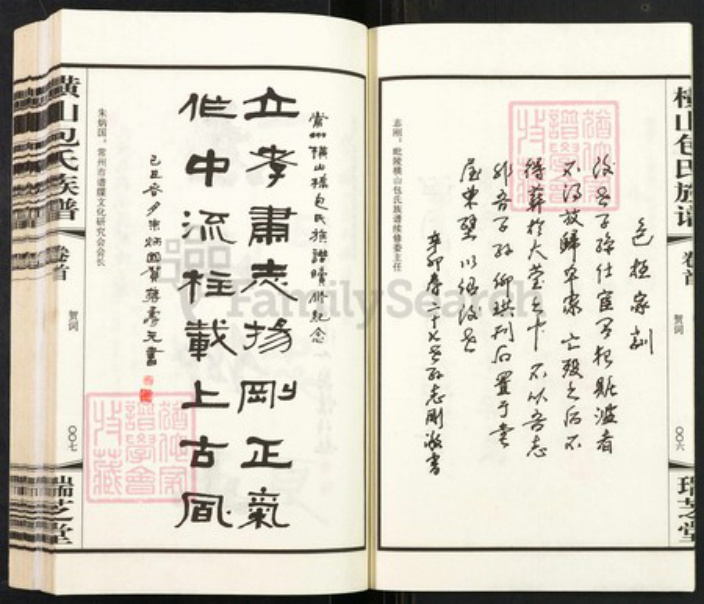 横山包氏族谱
卷首
贺词
〇〇六
瑞芝堂
包拯家训
后世子孙仕宦有犯赃滥者
不得放归本家亡殁之后不
得葬于大茔之中不从吾志
非吾子孙仰珙刊石置于堂
屋东壁以诏后世
辛卯春二十七世孙志刚敬书
志刚，毗陵横山包氏族谱续修委主任
常州横山橋包氏族譜續修紀念
立孝肅志揚剛正氣
作中流柱載上古風
己丑
朱炳國
書
朱炳国，常州市谱牒文化研究会会长
横山包氏族谱
卷首
贺词
〇〇七
瑞芝堂
FamilySearch
譜學會
特藏
譜學會
特藏